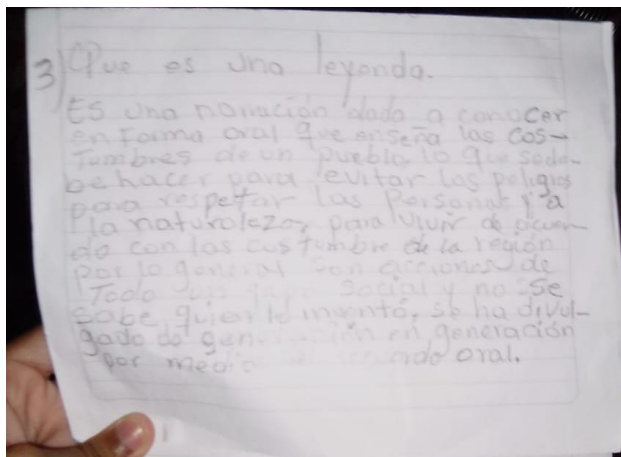 3) Que es una leyenda.
Es una narración dada a conocer
en forma oral que enseña las cos-
tumbres de un pueblo lo que seda-
be hacer para evitar los peligros
para respetar las personas y a
la naturaleza, para vivir de acuer-
do con las costumbre de la región
por lo general son acciones de
Todo un social y no se
sabe quien lo inventó, se ha divul-
gado de generación en generación
por medio oral.